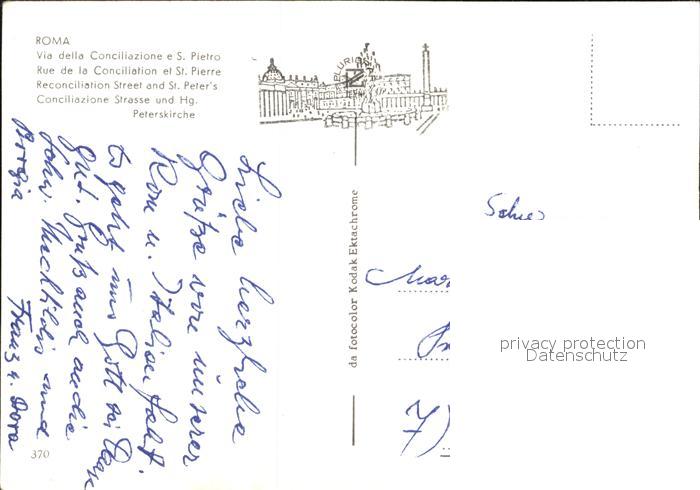 ROMA
Via della Conciliazione e S. Pietro
Rue de la Conciliation et St. Pierre
Reconciliation Street and St. Peter's
Conciliazione Strasse und Hg.
Peterskirche
PLURIGRAF
Liebe herzliche
Grüße von unserer
Rom u. Italienfahrt.
Es geht uns Gott sei Dank
gut. Gruß auch an die
Schw. Mechtildis und
Borgia
Franz u. Dora
370
da fotocolor Kodak Ektachrome
privacy protection
Datenschutz